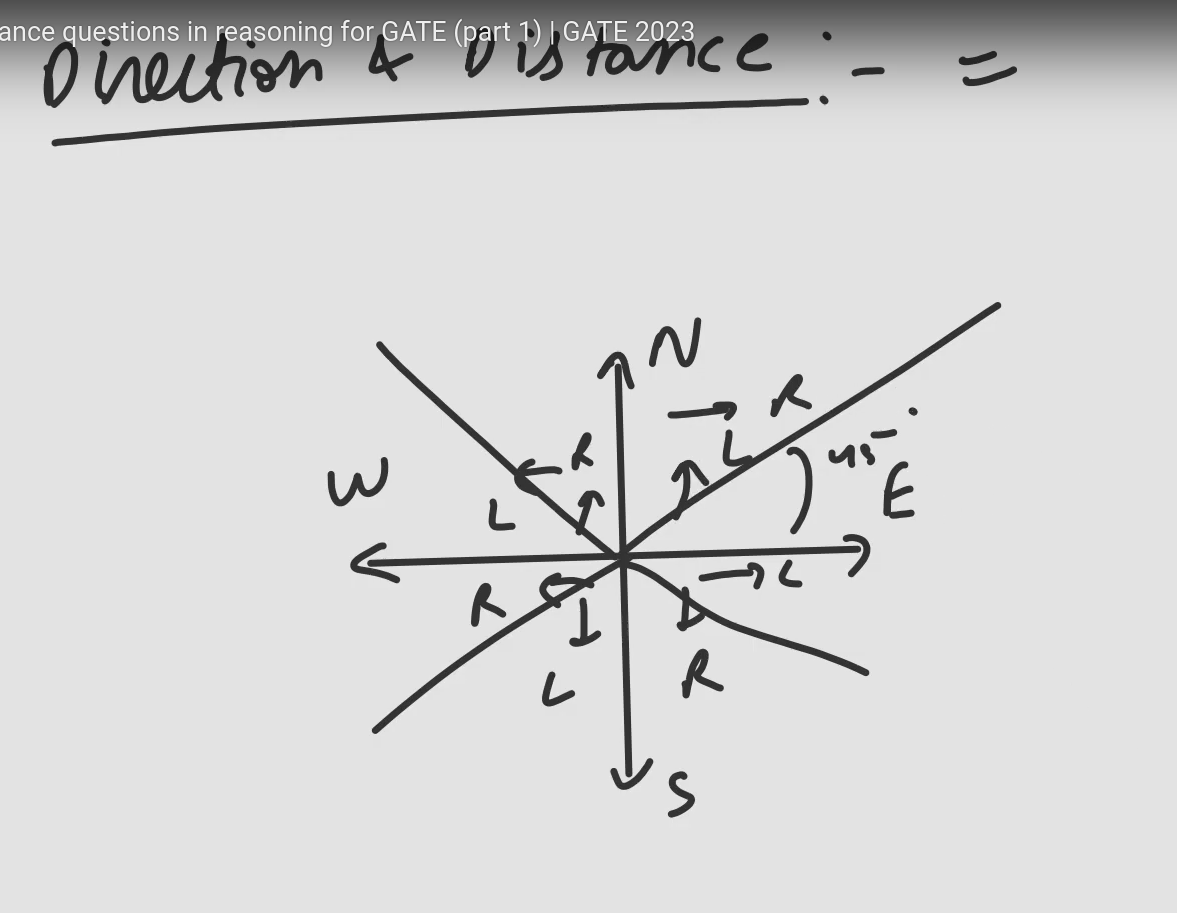 ance questions in reasoning for GATE (part 1) | GATE 2023
Direction & Distance :- =
N
R
R
L
45°
W
E
L
L
R
L
R
S